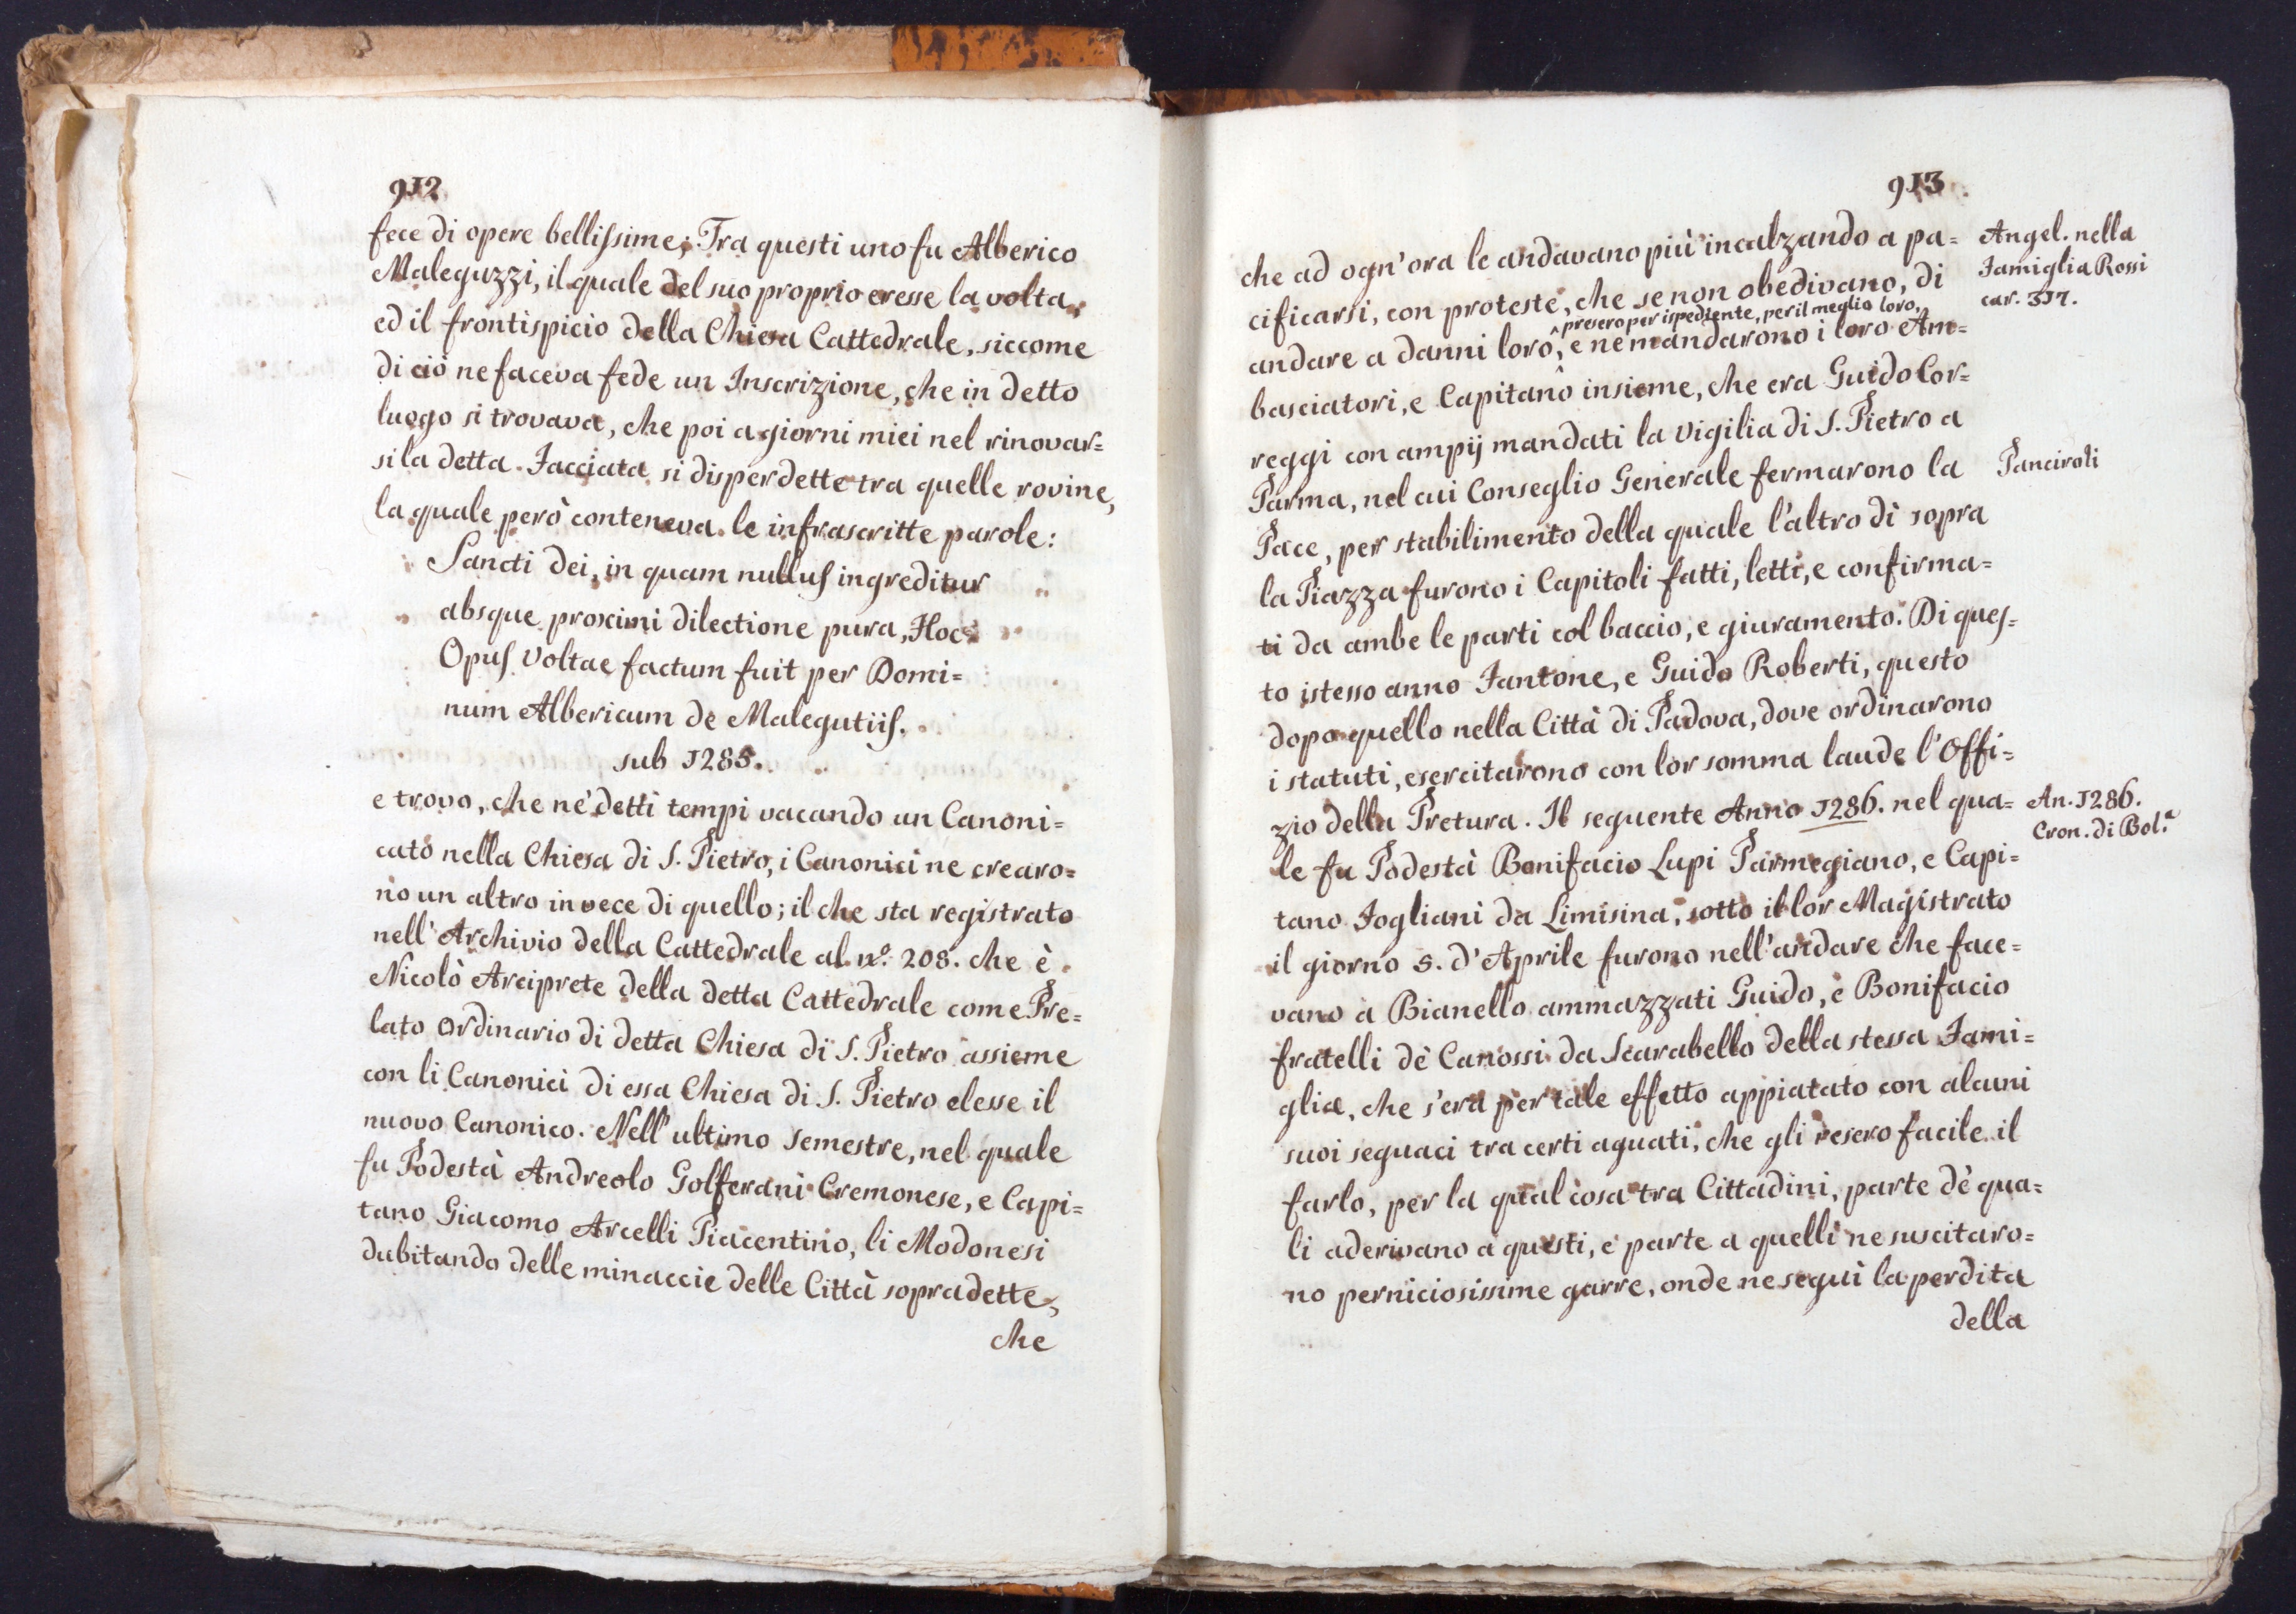 912
fece di opere bellissime; Tra questi uno fu Alberico
Maleguzzi, il quale del suo proprio eresse la volta,
ed il frontispicio della Chiesa Cattedrale, siccome
di ciò ne faceva fede un Inscrizione, che in detto
luogo si trovava, che poi a giorni miei nel rinovar=
si la detta Facciata si disperdette tra quelle rovine,
la quale però conteneva le infrascritte parole:
Sancti dei, in quam nullus ingreditur
absque proximi dilectione pura, Hoc
Opus Voltae factum fuit per Domi=
num Albericum de Malegutiis.
sub 1285.
e trovo, che ne' detti tempi vacando un Canoni=
cato nella Chiesa di S. Pietro, i Canonici ne crearo=
no un altro invece di quello; il che sta registrato
nell'Archivio della Cattedrale al nº. 208. che è
Nicolò Arciprete della detta Cattedrale come Pre=
lato Ordinario di detta Chiesa di S. Pietro assieme
con li Canonici di essa Chiesa di S. Pietro elesse il
nuovo Canonico. Nell'ultimo semestre, nel quale
fu Podestà Andreolo Golferani Cremonese, e Capi=
tano Giacomo Arcelli Piacentino, li Modonesi
dubitando delle minaccie delle Città sopradette,
che
913
che ad ogn'ora le andavano più incalzando a pa=
cificarsi, con proteste, che se non obedivano, di
presero per ispediente, per il meglio loro,
andare a danni loro,^ e ne mandarono i loro Am=
basciatori, e Capitano insieme, che era Guido Cor=
reggi con ampij mandati la vigilia di S. Pietro a
Parma, nel cui Conseglio Generale fermarono la
Pace, per stabilimento della quale l'altro dì sopra
la Piazza furono i Capitoli fatti, letti, e confirma=
ti da ambe le parti col baccio, e giuramento. Di ques=
to istesso anno Fantone, e Guido Roberti, questo
dopo quello nella Città di Padova, dove ordinarono
i statuti, esercitarono con lor somma laude l'Offi=
zio della Pretura. Il seguente Anno 1286. nel qua=
le fu Podestà Bonifacio Lupi Parmegiano, e Capi=
tano Fogliani da Limisina, sotto il lor Magistrato
il giorno 5. d'Aprile furono nell'andare che face=
vano a Bianello ammazzati Guido, e Bonifacio
fratelli dè Canossi da Scarabello della stessa Fami=
glia, che s'era per tale effetto appiatato con alcuni
suoi seguaci tra certi aguati, che gli resero facile il
farlo, per la qual cosa tra Cittadini, parte dè qua=
li aderivano a questi, e parte a quelli ne suscitaro=
no perniciosissime garre, onde ne seguì la perdita
della
Angel. nella
Famiglia Rossi
car. 317.
Panciroli
An. 1286.
Cron. di Bol.ª